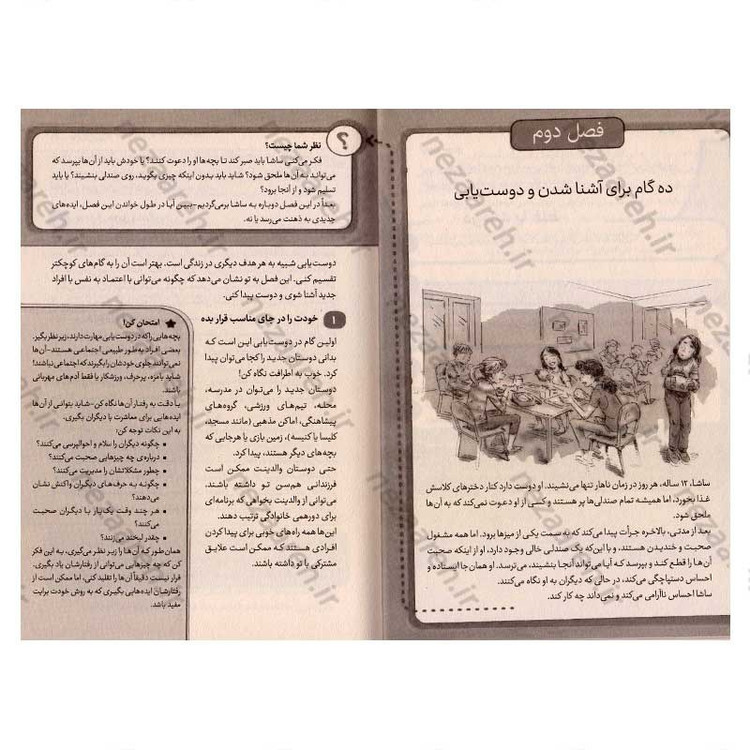 فصل دوم
ده گام برای آشنا شدن و دوست‌یابی
ساشا، ۱۲ ساله، هر روز در زمان ناهار تنها می‌نشیند. او دوست دارد کنار دخترهای کلاسش
غذا بخورد، اما همیشه تمام صندلی‌ها پر هستند و کسی از او دعوت نمی‌کند که به آن‌ها
ملحق شود.
بعد از مدتی، بالاخره جرأت پیدا می‌کند که به سمت یکی از میزها برود. اما همه مشغول
صحبت و خندیدن هستند، و با این‌که یک صندلی خالی وجود دارد، او از اینکه صحبت
آن‌ها را قطع کند و بپرسد که آیا می‌تواند آنجا بنشیند، می‌ترسد. او همان جا ایستاده و
احساس دستپاچگی می‌کند، در حالی که دیگران به او نگاه می‌کنند.
ساشا احساس ناآرامی می‌کند و نمی‌داند چه کار کند.
؟
نظر شما چیست؟
فکر می‌کنی ساشا باید صبر کند تا بچه‌ها او را دعوت کنند؟ یا خودش باید از آن‌ها بپرسد که
می‌تواند به آن‌ها ملحق شود؟ شاید باید بدون اینکه چیزی بگوید، روی صندلی بنشیند؟ یا باید
تسلیم شود و از آنجا برود؟
بعداً در این فصل دوباره به ساشا برمی‌گردیم-ببین آیا در طول خواندن این فصل، ایده‌های
جدیدی به ذهنت می‌رسد یا نه.
دوست‌یابی شبیه به هر هدف دیگری در زندگی است. بهتر است آن را به گام‌های کوچکتر
تقسیم کنی. این فصل به تو نشان می‌دهد که چگونه می‌توانی با اعتماد به نفس با افراد
جدید آشنا شوی و دوست پیدا کنی.
۱ خودت را در جای مناسب قرار بده
اولین گام در دوست‌یابی این است که
بدانی دوستان جدید را کجا می‌توان پیدا
کرد. خوب به اطرافت نگاه کن!
دوستان جدید را می‌توان در مدرسه،
محله، تیم‌های ورزشی، گروه‌های
پیشاهنگی، اماکن مذهبی (مانند مسجد،
کلیسا یا کنیسه)، زمین بازی یا هرجایی که
بچه‌های دیگر هستند، پیدا کرد.
حتی دوستان والدینت ممکن است
فرزندانی هم‌سن تو داشته باشند.
می‌توانی از والدینت بخواهی که برنامه‌ای
برای دورهمی خانوادگی ترتیب دهند.
این‌ها همه راه‌های خوبی برای پیدا کردن
افرادی هستند که ممکن است علایق
مشترکی با تو داشته باشند.
امتحان کن!
بچه‌هایی را که در دوست‌یابی مهارت دارند، زیر نظر بگیر.
بعضی افراد به‌طور طبیعی اجتماعی هستند-آن‌ها
نمی‌توانند جلوی خودشان را بگیرند که اجتماعی نباشند!
شاید بامزه، پرحرف، ورزشکار یا فقط آدم‌های مهربانی
باشند.
با دقت به رفتار آن‌ها نگاه کن-شاید بتوانی از آن‌ها
ایده‌هایی برای معاشرت با دیگران بگیری.
به این نکات توجه کن:
• چگونه دیگران را سلام و احوالپرسی می‌کنند؟
• درباره‌ی چه چیزهایی صحبت می‌کنند؟
• چطور مشکلاتشان را مدیریت می‌کنند؟
• چگونه به حرف‌های دیگران واکنش نشان
می‌دهند؟
• هر چند وقت یک‌بار با دیگران صحبت
می‌کنند؟
• چقدر لبخند می‌زنند؟
همان‌طور که آن‌ها را زیر نظر می‌گیری، به این فکر
کن که چه چیزهایی می‌توانی از رفتارشان یاد بگیری.
قرار نیست دقیقاً آن‌ها را تقلید کنی، اما ممکن است از
رفتارشان ایده‌هایی بگیری که به روش خودت برایت
مفید باشد.
nezaareh.ir